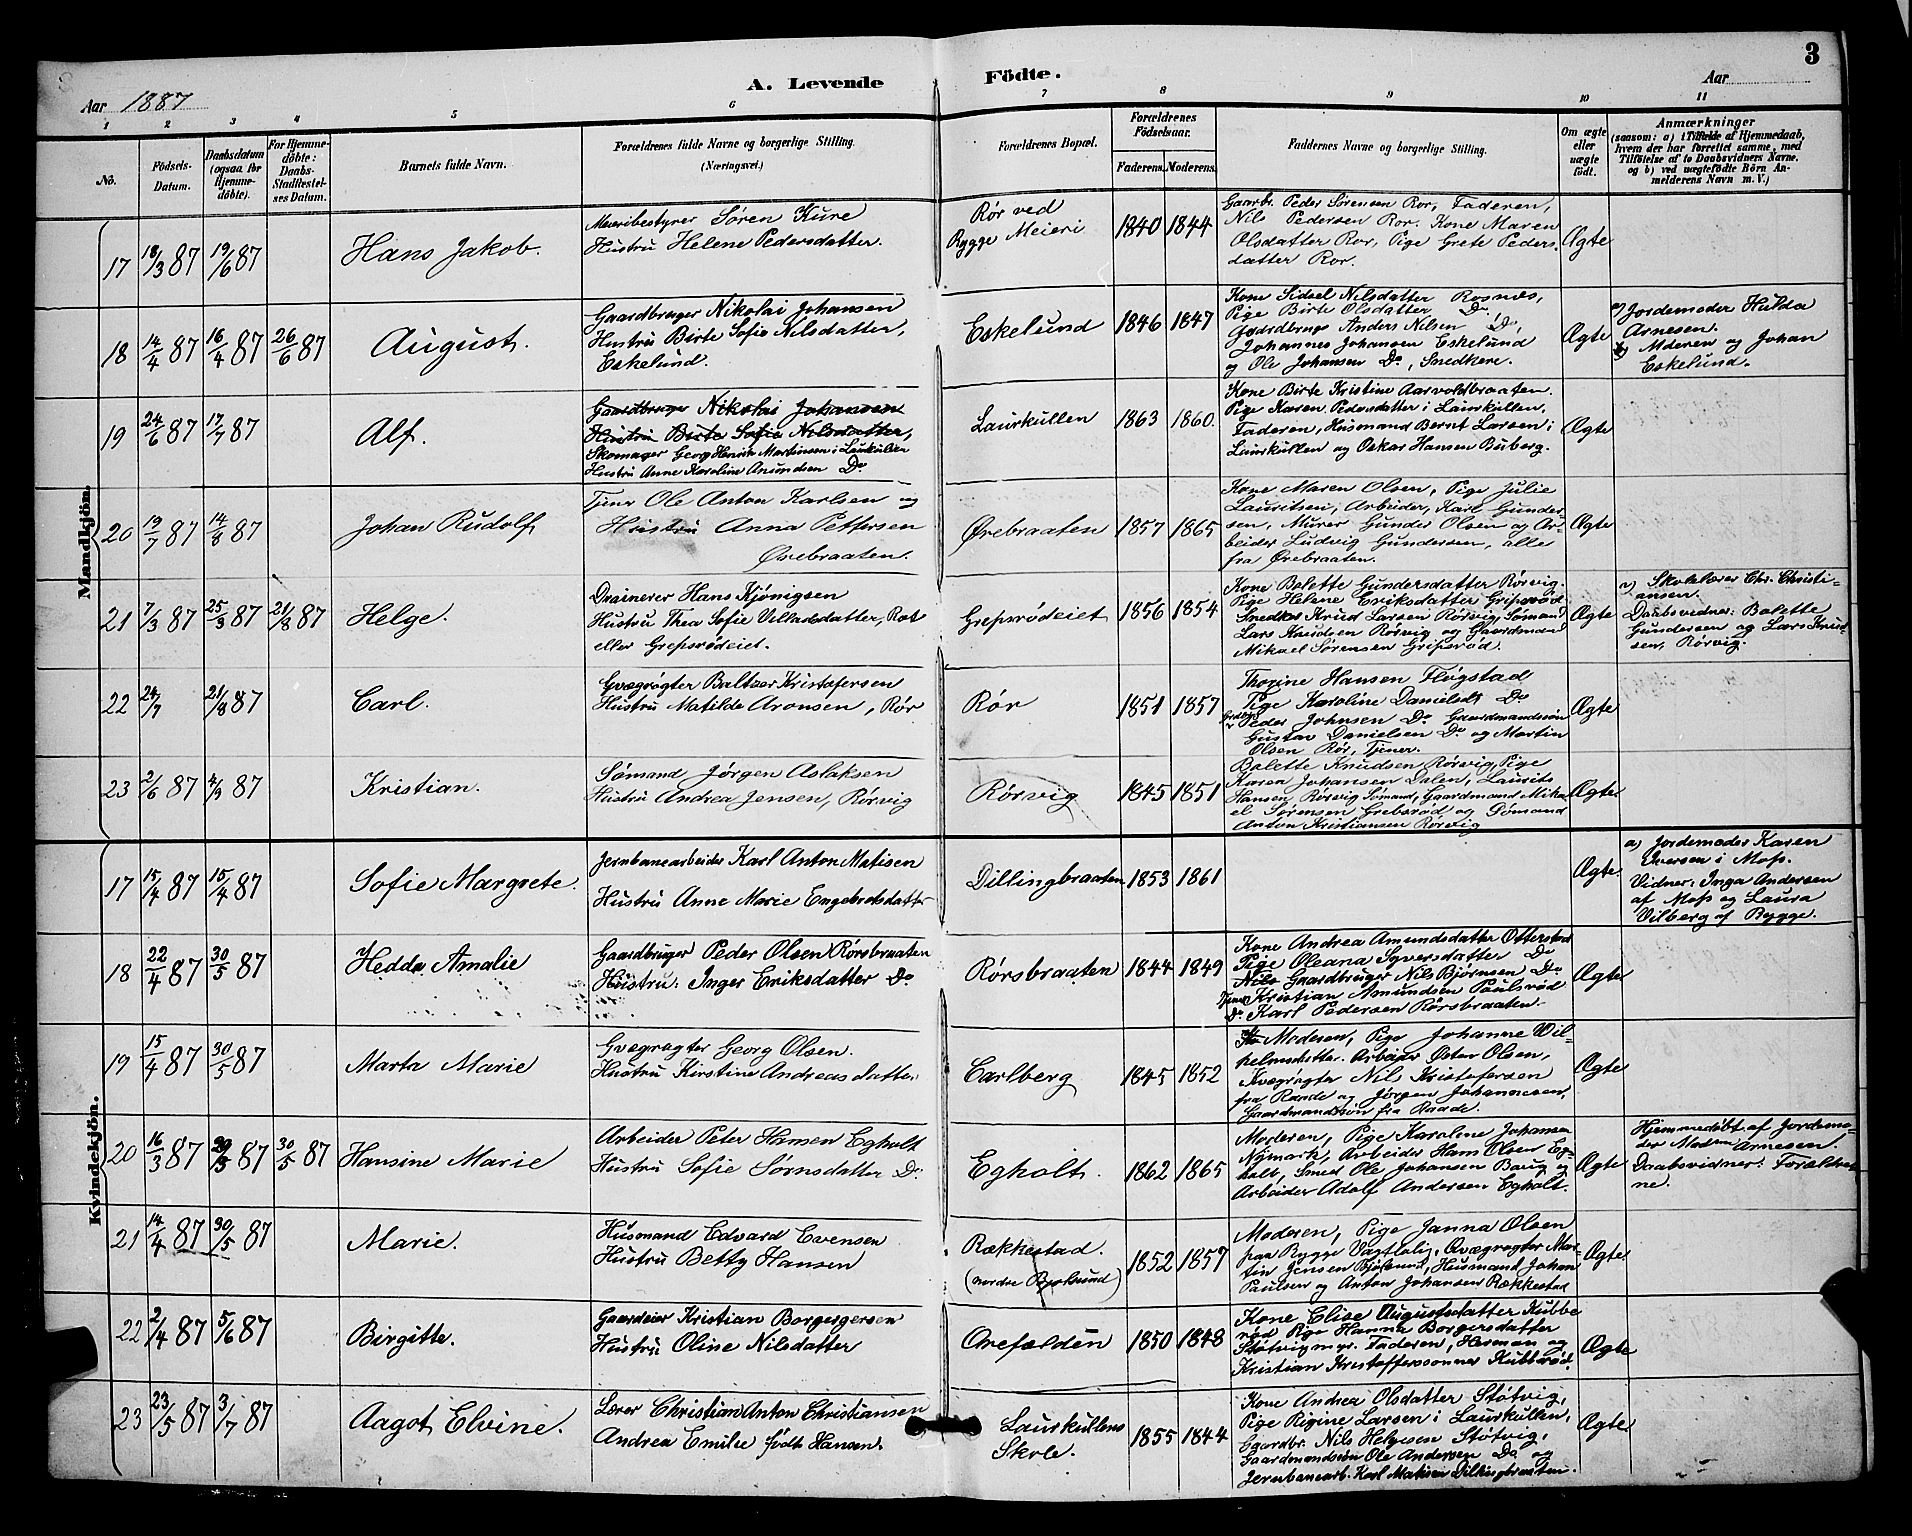 3
A. Levende Födte.
Aar 1887
Aar
1 2 3 4 5 6 7 8 9 10 11
No.
Födsels-
Datum.
Daabsdatum
(ogsaa for
Hjemme-
döbte).
For Hjemme-
döbte:
Daabs-
Stadfæstel-
ses Datum.
Barnets fulde Navn.
Forældrenes fulde Navne og borgerlige Stilling.
(Næringsvei.)
Forældrenes Bopæl.
Forældrenes
Födselsaar.
Faderens. Moderens.
Faddernes Navne og borgerlige Stilling.
Om ægte
eller
uægte
födt.
Anmærkninger
(saasom: a) i Tilfælde af Hjemmedaab,
hvem der har forrettet samme, med
Tilföielse af to Daabsvidners Navne,
og b) ved uægtefödte Börn An-
melderens Navn m. V.)
Mandkjön.
17 18/3 87 19/6 87
Hans Jakob.
Meieribestyrer Søren Kure
Hustru Helene Pedersdatter.
Rør ved
Rygge Meieri
1840 1844
Gaarbr. Peder Sørensen Ror, Faderen,
Nils Pedersen Ror. Kone Maren
Olsdatter Ror, Pige Grete Peders
datter Ror.
Ægte
18 14/4 87 16/4 87 26/6 87
August.
Gaardbruger Nikolai Johansen
Hustru Birte Sofie Nilsdatter,
Eskelund.
Eskelund
1846 1847
Kone Sidsel Nilsdatter Rosnes,
Pige Birte Olsdatter Do,
Gaardbruger Anders Nilsen Do,
Johannes Johansen Eskelund
og Ole Johansen Do, Snedkere.
Ægte
a) Jordemoder Hulda
Arnesen.
Moderen og Johan
Eskelund.
19 24/6 87 17/7 87
Alf.
Gaardbruger Nikolai Johansen
Hustru Birte Sofie Nilsdatter,
Skomager Georg Henrik Martinsen i Laurkullen
Hustru Anne Karoline Amundsen Do
Laurkullen
1863 1860.
Kone Birte Kristine Aarvoldbraaten.
Pige Karen Pedersdatter i Laurkullen,
Faderen, Husmand Bernt Larsen i
Laurkullen og Oskar Hansen Buberg.
Ægte
20 19/7 87 14/8 87
Johan Rudolf
Tjener Ole Anton Karlsen og
Hustru Anna Pettersen
Ørebraaten.
Ørebraaten
1857 1865
Kone Maren Olsen, Pige Julie
Lauritsen, Arbeider, Karl Gunder
sen, Murer Gunder Olsen og Ar-
beider Ludvig Gundersen, alle
fra Ørebraaten.
Ægte
21 7/3 87 25/3 87 21/8 87
Helge.
Drainerer Hans Kjønigsen
Hustru Thea Sofie Villadsdatter, Rot
eller Grepsrødeiet.
Grepsrødeiet
1856 1854
Kone Balette Gundersdatter Rørvig.
Pige Helene Eriksdatter Gripsrød
Snedker Knud Larsen Rørvig, Sømand
Lars Knudsen Rørvig og Gaardmand
Mikael Sørensen Gripsrød.
Ægte
a) Skolelærer Chr. Christi-
ansen.
Daabsvidner: Balette
Gundersen og Lars Knud-
sen, Rørvig.
22 24/7 21/8 87
Carl.
Gvægrøgter Baltzer Kristofersen
Hustru Matilde Aronsen, Rør
Rør
1851 1857
Thorine Hansen Fløgstad
Pige Karoline Danielsdt Do
Peder Johnsen Do Gaardmandssøn
Gustav Danielsen Do og Martin
Olsen Rør, Tjener.
Ægte
23 2/6 87 4/9 87
Kristian.
Sømand Jørgen Aslaksen
Hustru Andrea Jensen, Rørvig
Rørvig
1845 1851
Balette Knudsen Rørvig, Pige
Karen Johansen Dalen, Laurits
Hansen Rørvig Sømand, Gaardmand Mika
el Sørensen Grebsrød og Sømand
Anton Kristiansen Rørvig
Ægte
Kvindekjön.
17 15/4 87 15/4 87
Sofie Margrete.
Jernbanearbeider Karl Anton Matisen
Hustru Anne Marie Engebretsdatter
Dillingbraaten
1853 1861
Ægte
a) Jordemoder Karen
Iversen i Moss.
Vidner: Inga Andersen
af Moss og Laura
Vilberg af Rygge.
18 22/4 87 30/5 87
Hedda Amalie
Gaardbruger Peder Olsen Rørsbraaten
Hustru: Inger Eriksdatter Do
Rørsbraaten
1844 1849
Kone Andrea Amundsdatter Otterstad
Pige Oleana Syversdatter Do
Nils Gaardbruger Nils Bjørnsen Do
Tjener Kristian Amundsen Paulsrød
Do Karl Pedersen Rørsbraaten.
Ægte
19 15/4 87 30/5 87
Marta Marie
Gvægrøgter Georg Olsen.
Hustru Kirstine Andreasdatter.
Carlberg
1845 1852
Moderen, Pige Johanne Vil-
helmsdatter. Arbeider Peter Olsen,
Kvægrøgter Nils Kristofersen
fra Raade og Jørgen Johannesen,
Gaardmandssøn fra Raade.
Ægte
20 16/3 87 20/3 87 30/5 87
Hansine Marie
Arbeider Peter Hansen Egholt
Hustru Sofie Sørnsdatter Do
Egholt.
1862 1865
Moderen, Pige Karoline Johansen
Nymark, Arbeider Hans Olsen Eg-
holt, Smed Ole Johansen Baug og
Arbeider Adolf Andersen Egholt.
Ægte
Hjemmedøbt af Jordemo-
der Madam Arnesen.
Daabsvidner: Forældre-
ne.
21 14/4 87 30/5 87
Marie.
Husmand Edvard Evensen
Hustru Betty Hansen
Rækkestad.
1852 1857
Moderen, Pige Janna Olsen
paa Rygge Vagtbolig, Qvægrøgter Mar-
tin Jensen Bjølsund, Husmand Johan
Paulsen og Anton Johansen Rækkestad
Ægte
22 2/4 87 5/6 87
Birgitte.
Gaardeier Kristian Borgersen
Hustru Oline Nilsdatter
Orefælden
1850 1848
Kone Elise Augustsdatter Kubbe
rød Pige Hanna Borgersdatter
Støtvig myr. Faderen, Herman og
Kristian Kristofferssønner Kubberød.
Ægte
23 23/5 87 3/7 87
Aagot Elvine.
Lærer Christian Anton Christiansen
Andrea Emilie født Hansen.
Laurkullens
Skole.
1855 1844
Kone Andrea Olsdatter Støtvig,
Pige Rigine Larsen i Laurkullen,
Gaardbr. Nils Helgesen Støtvig,
Gaardmandssøn Ole Andersen Do og
Jernbanearb. Karl Matisen Dillingbraaten.
Ægte